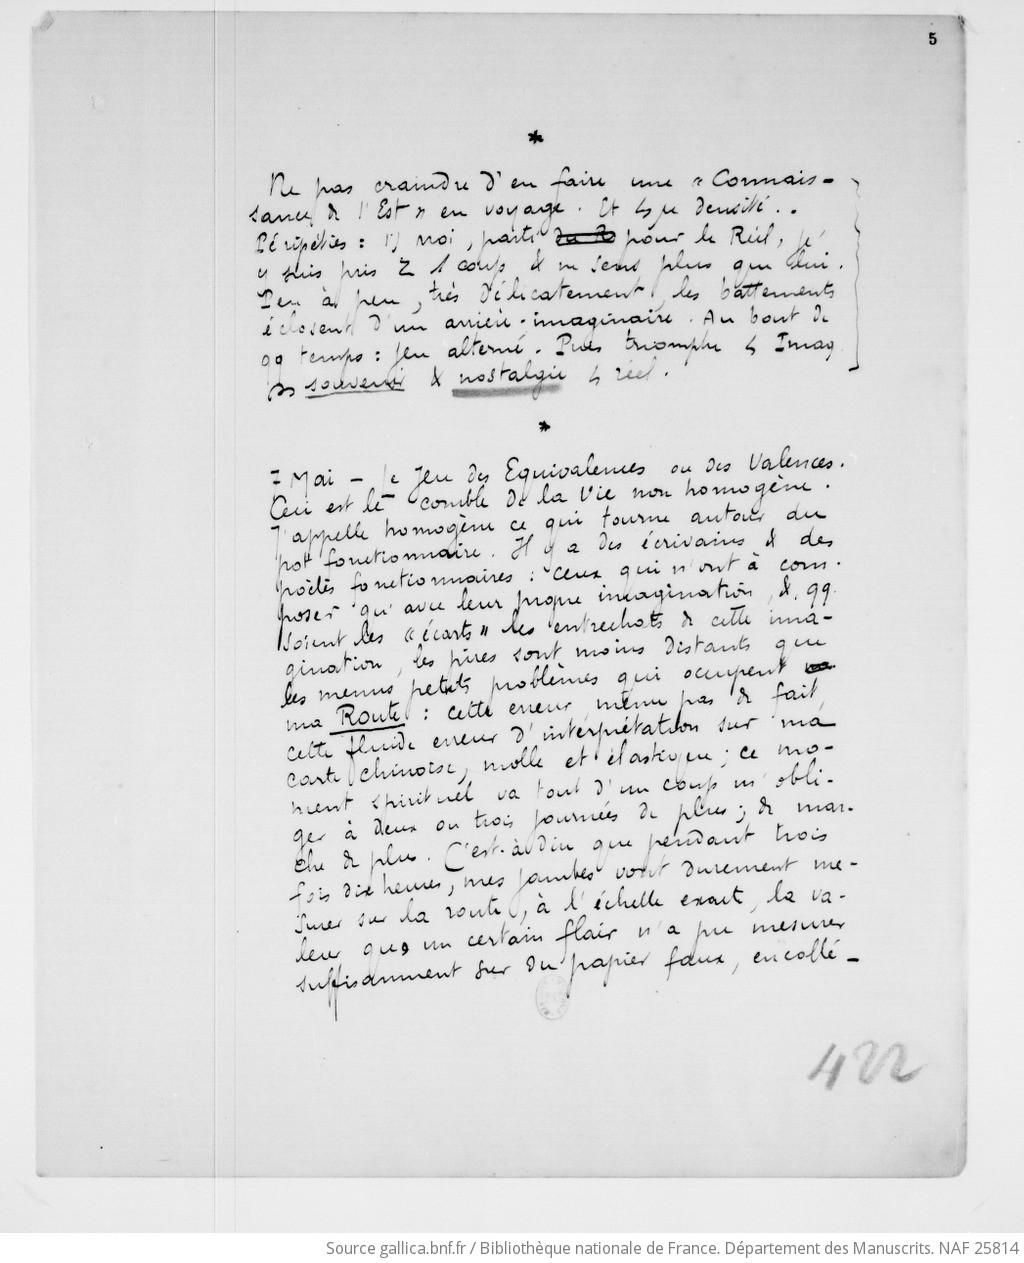 5
*
Ne pas craindre d'en faire une « Connais-
sance de l'Est » en voyage. Et densité..
Péripéties : 1) moi, parti du R pour le Réel, j'
y suis pris 1 coup & ne sens plus que lui.
Peu à peu, très délicatement, les battements
éclosent d'un arrière-imaginaire. Au bout de
qq temps : Jeu alterné. Puis triomphe Imag
souvenir & nostalgie réel.
*
7 Mai - le Jeu des Equivalences ou des Valences.
Ceci est le comble de la Vie non homogène.
J'appelle homogène ce qui tourne autour du
pot fonctionnaire. Il y a des écrivains & des
poètes fonctionnaires : ceux qui n'ont à com-
poser qu'avec leur propre imagination, & qq
soient les « écarts » les entrechats de cette ima-
gination, les pires sont moins distants que
les menus petits problèmes qui occupent
ma Route : cette erreur même pas de fait,
cette fluide erreur d'interprétation sur ma
carte chinoise, molle et élastique ; ce mo-
ment spirituel va tout d'un coup m'obli-
ger à deux ou trois journées de plus ; de mar-
che de plus. C'est-à-dire que pendant trois
fois dix heures, mes jambes vont durement me-
surer sur la route, à l'échelle exacte, la va-
leur que un certain flair n'a pu mesurer
suffisamment sur du papier faux, encollé-
422
Source gallica.bnf.fr / Bibliothèque nationale de France. Département des Manuscrits. NAF 25814